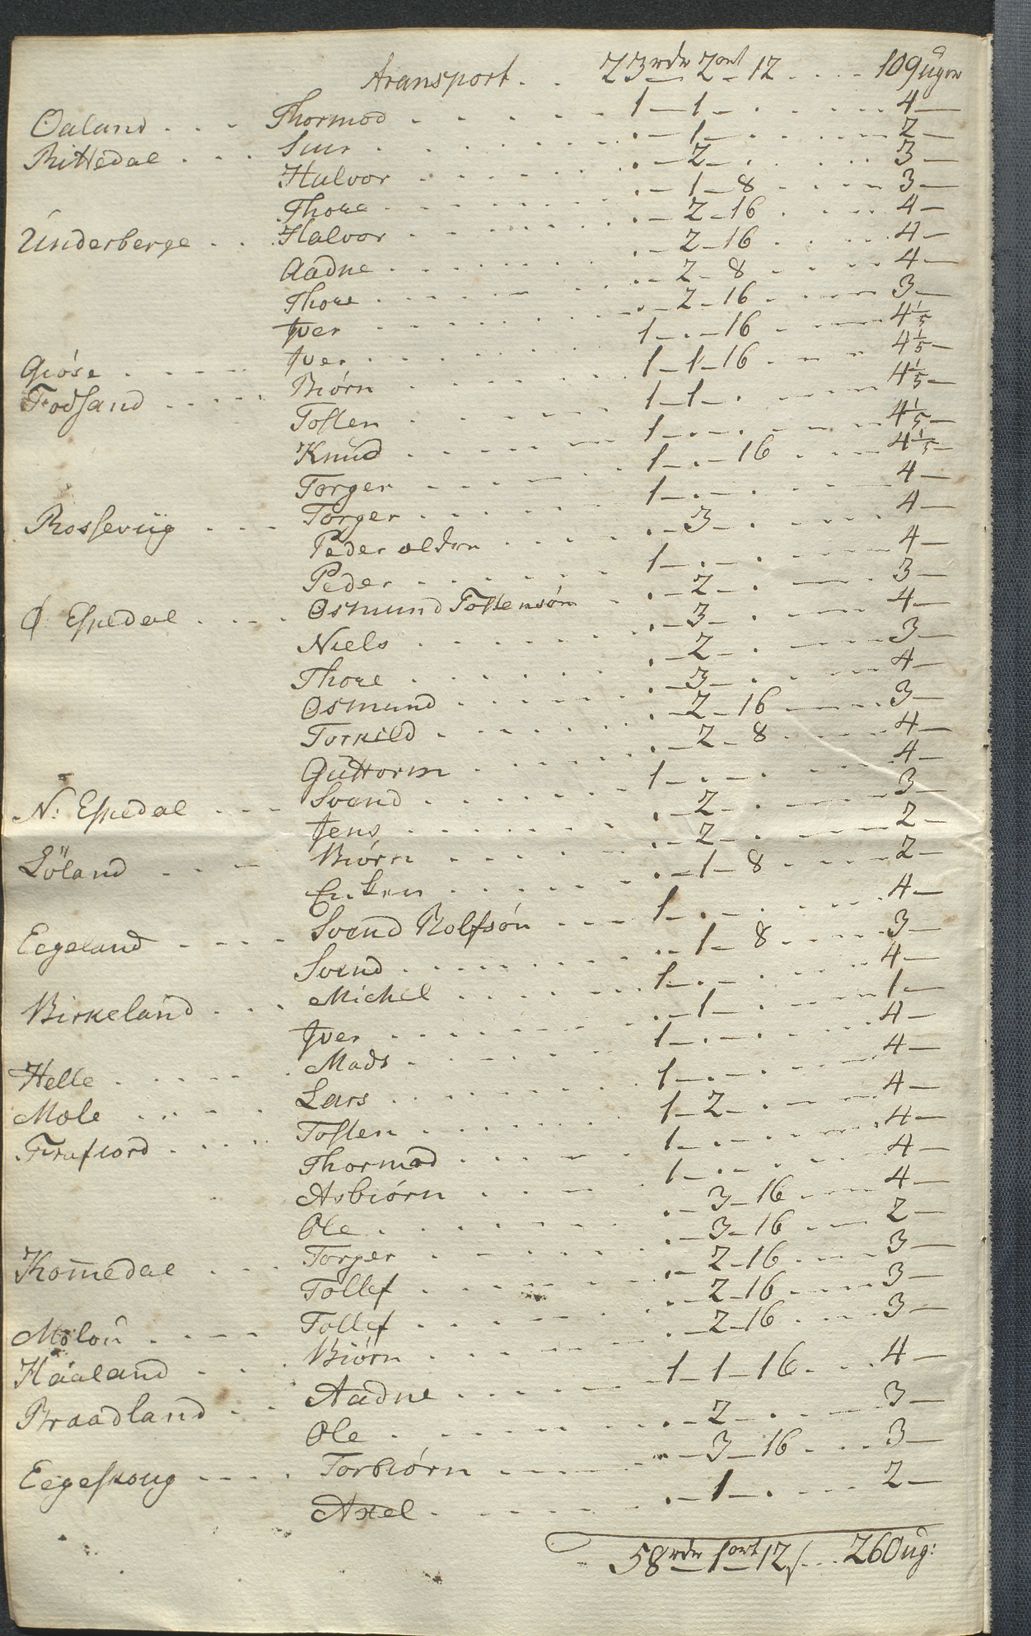 Transport. . 23 rdr 2 ort 12 . . . . 109 ugr
Oaland . . . Thormod . . . . . . 1 — 1 — . . . . . 4 —
Rittedal . . . Siur . . . . . . . — 1 — . . . . . 2 —
Hulvor . . . . . . . — 2 — . . . . . 3 —
Thore . . . . . . . — 1 — 8 . . . . 3 —
Underberge . . Halvor . . . . . . . — 2 — 16 . . . . 4 —
Aadne . . . . . . . — 2 — 16 . . . . 4 —
Thore . . . . . . . — 2 — 8 . . . . 4 —
Iver . . . . . . . — 2 — 16 . . . . 3 —
Giöse . . . . Iver . . . . . . 1 — . — 16 . . . . 4 1/5
Fodsand . . . . Biörn . . . . . . 1 — 1 — 16 . . . . 4 1/5 —
Tosten . . . . . . 1 — 1 — . . . . 4 1/5 —
Knud . . . . . . 1 — . — . . . . 4 1/5 —
Torger . . . . . . 1 — . — 16 . . . . 4 1/5 —
Torger . . . . . . 1 — . — . . . . 4 —
Rossevüg . . . Peder elder . . . . . — 3 — . . . . 4 —
Peder . . . . . . 1 — . — . . . . 4 —
Ö Espedal . . . . Osmund Tostensön . . — 2 — . . . . 3 —
Niels . . . . . . . — 3 — . . . . 4 —
Thore . . . . . . . — 2 — . . . . 3 —
Osmund . . . . . . . — 3 — . . . . 4 —
Torkild . . . . . . . — 2 — 16 . . . . 3 —
Guttorm . . . . . . . — 2 — 8 . . . . 4 —
N: Espedal . . . Svend . . . . . . 1 — . — . . . . 4 —
Jens . . . . . . . — 2 — . . . . 3 —
Löland . . . Biörn . . . . . . . — 2 — . . . . 2 —
Enken . . . . . . . — 1 — 8 . . . . 2 —
Eegeland . . . . Svend Rolfsön . . . 1 — . — . . . . 4 —
Svend . . . . . . . — 1 — 8 . . . . 3 —
Birkeland . . . Michel . . . . . . 1 — . — . . . . 4 —
Iver . . . . . . . — 1 — . . . . 1 —
Helle . . . . . Mads . . . . . . 1 — . — . . . . 4 —
Mæle . . . . . Lars . . . . . . 1 — . — . . . . 4 —
Frafiord . . . . Tosten . . . . . . 1 — 2 — . . . . 4 —
Thormod . . . . . . 1 — . — . . . . 4 —
Asbiörn . . . . . . 1 — . — . . . . 4 —
Ole . . . . . . . — 3 — 16 . . . . 4 —
Kommedal . . . Torger . . . . . . . — 3 — 16 . . . . 2 —
Tollef . . . . . . . — 2 — 16 . . . . 3 —
Molou . . . . Tollef . . . . . . . — 2 — 16 . . . . 3 —
Haaland . . . Biörn . . . . . . . — 2 — 16 . . . . 3 —
Braadland . . Aadne . . . . . . 1 — 1 — 16 . . . . 4 —
Ole . . . . . . . — 2 — . . . . 3 —
Eegeskoug . . . . Torbiörn . . . . . . . — 3 — 16 . . . . 3 —
Axel . . . . . . . — 1 — . . . . 2 —
58 rdr 1 ort 12 s . . . 260 ug: